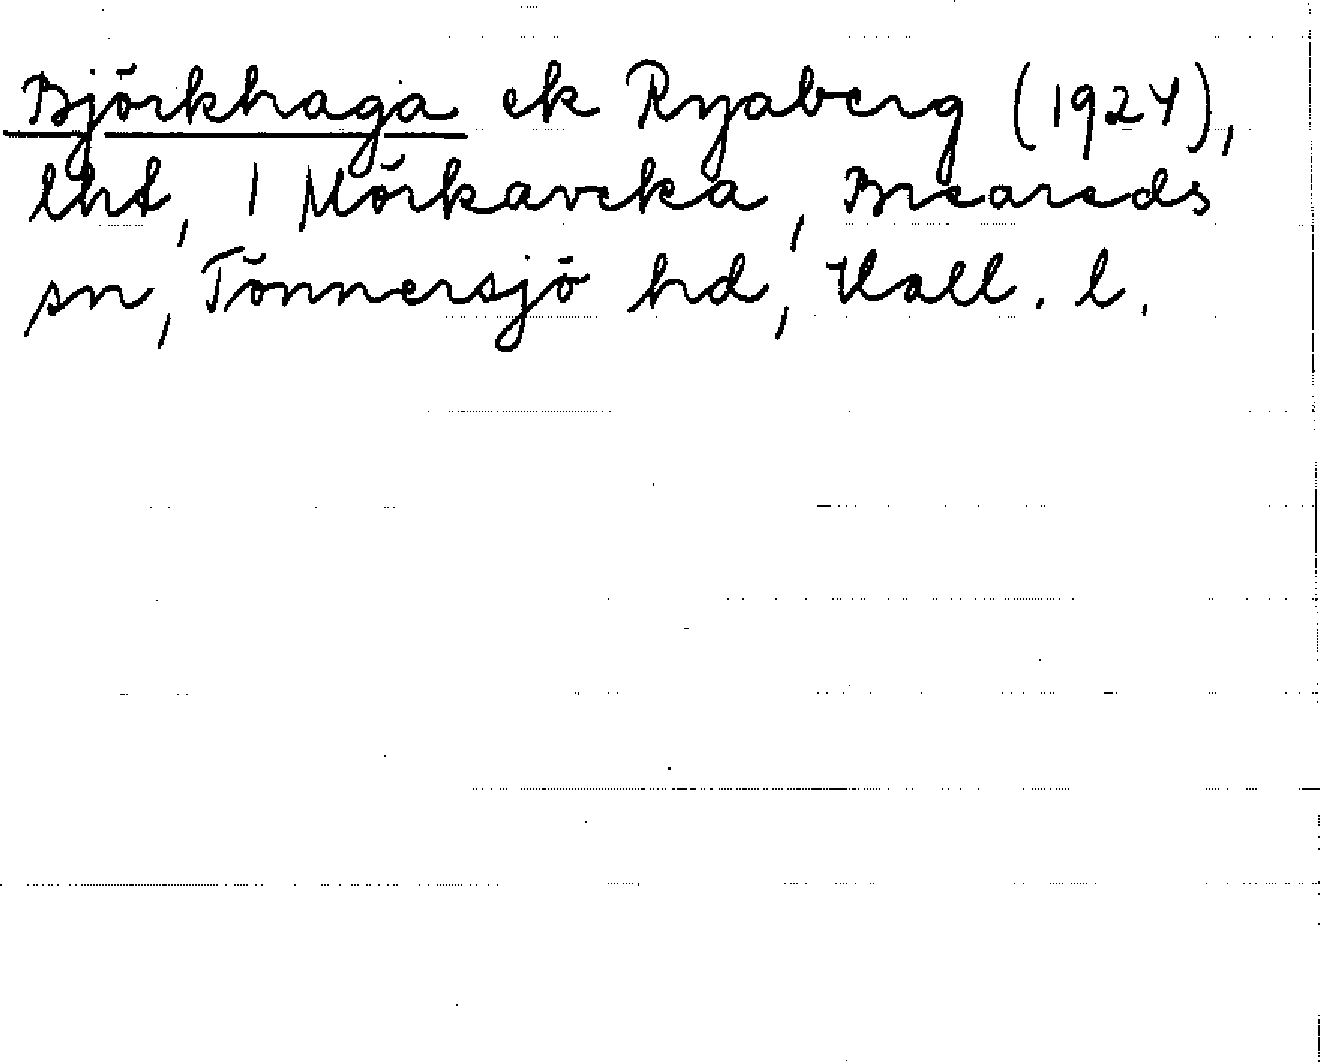 Björkhaga ek Ryaberg (1924),
lht, 1 Mörkaveka, Breareds
sn, Tönnersjö hd, Hall. l.